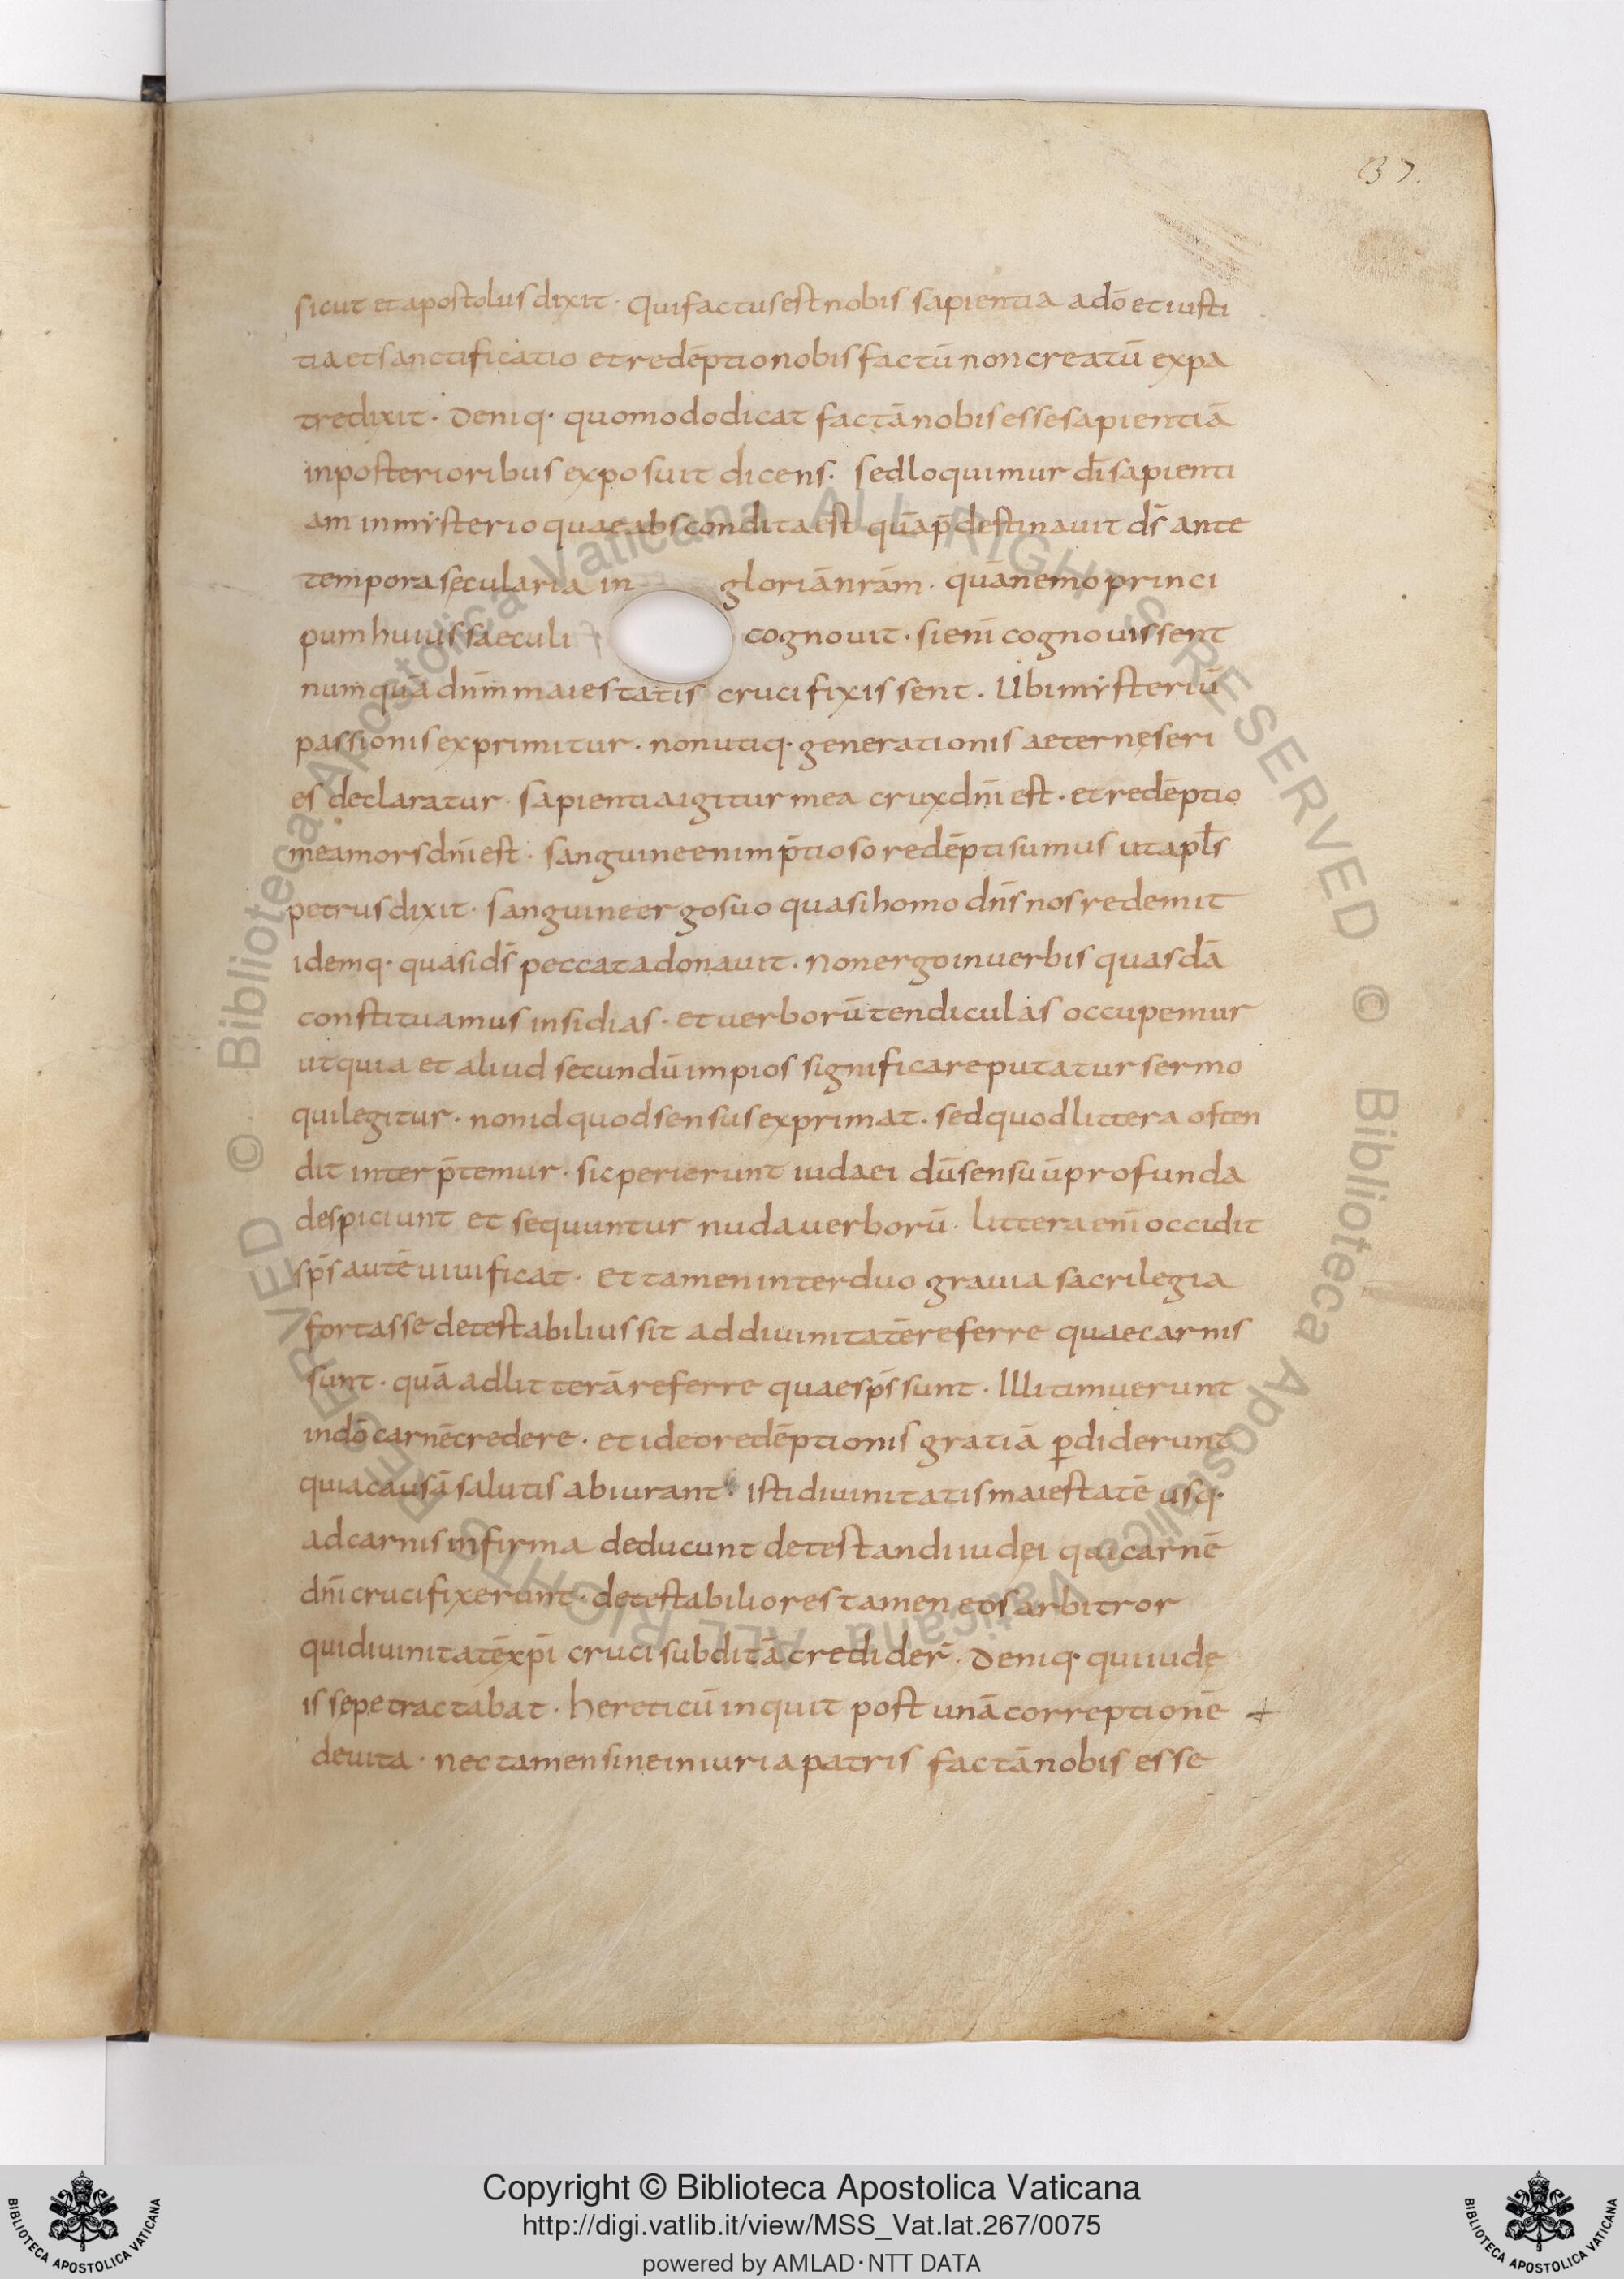 137.
sicut et apostolus dixit · Qui factus est nobis sapientia a dō et iusti
tia et sanctificatio et redēptio nobis factū non creatū ex pa
tre dixit · Deniq· quomodo dicat factā nobis esse sapientiā
in posterioribus exposuit dicens · sed loquimur dī sapienti
am in mysterio quae abscondita est quā p̄destinauit ds̄ ante
tempora secularia in gloriā nrām · quā nemo princi
pum huius saeculi cognouit · si enī cognouissent
numquā dnm̄ maiestatis crucifixissent . Ubi mysteriū
passionis exprimitur · non utiq· generationis aeternę seri
es declaratur · sapientia igitur mea crux dnī est · et redēptio
mea mors dnī est · sanguine enim p̄tioso redēpti sumus ut apls̄
petrus dixit · sanguine ergo suo quasi homo dns̄ nos redemit
idemq· quasi ds̄ peccata donauit · Non ergo in uerbis quasdā
constituamus insidias · et uerborū tendiculas occupemur
ut quia et aliud secundū impios significare putatur sermo
qui legitur · non id quod sensus exprimat · sed quod littera osten
dit interp̄temur · sic perierunt iudaei dū sensuū profunda
despiciunt et sequuntur nuda uerborū · littera enī occidit
sps̄ autē uiuificat · et tamen inter duo grauia sacrilegia
fortasse detestabilius sit ad diuinitatē referre quae carnis
sunt · quā ad litterā referre quae sps̄ sunt · Illi timuerunt
in dō carnē credere · et ideo redēptionis gratiā ꝑdiderunt
quia causā salutis abiurant · isti diuinitatis maiestatē usq·
ad carnis infirma deducunt detestandi iudęi qui carnē
dnī crucifixerunt · detestabiliores tamen eos arbitror
qui diuinitatē xpī cruci subditā credider̄ · Deniq· qui iudę
is sepe tractabat · hereticū inquit post unā correptionē
deuita · nec tamen sine iniuria patris factā nobis esse
Copyright © Biblioteca Apostolica Vaticana
http://digi.vatlib.it/view/MSS_Vat.lat.267/0075
powered by AMLAD·NTT DATA
BIBLIOTECA APOSTOLICA VATICANA
BIBLIOTECA APOSTOLICA VATICANA
© Biblioteca Apostolica Vaticana ALL RIGHTS RESERVED
© Biblioteca Apostolica Vaticana ALL RIGHTS RESERVED